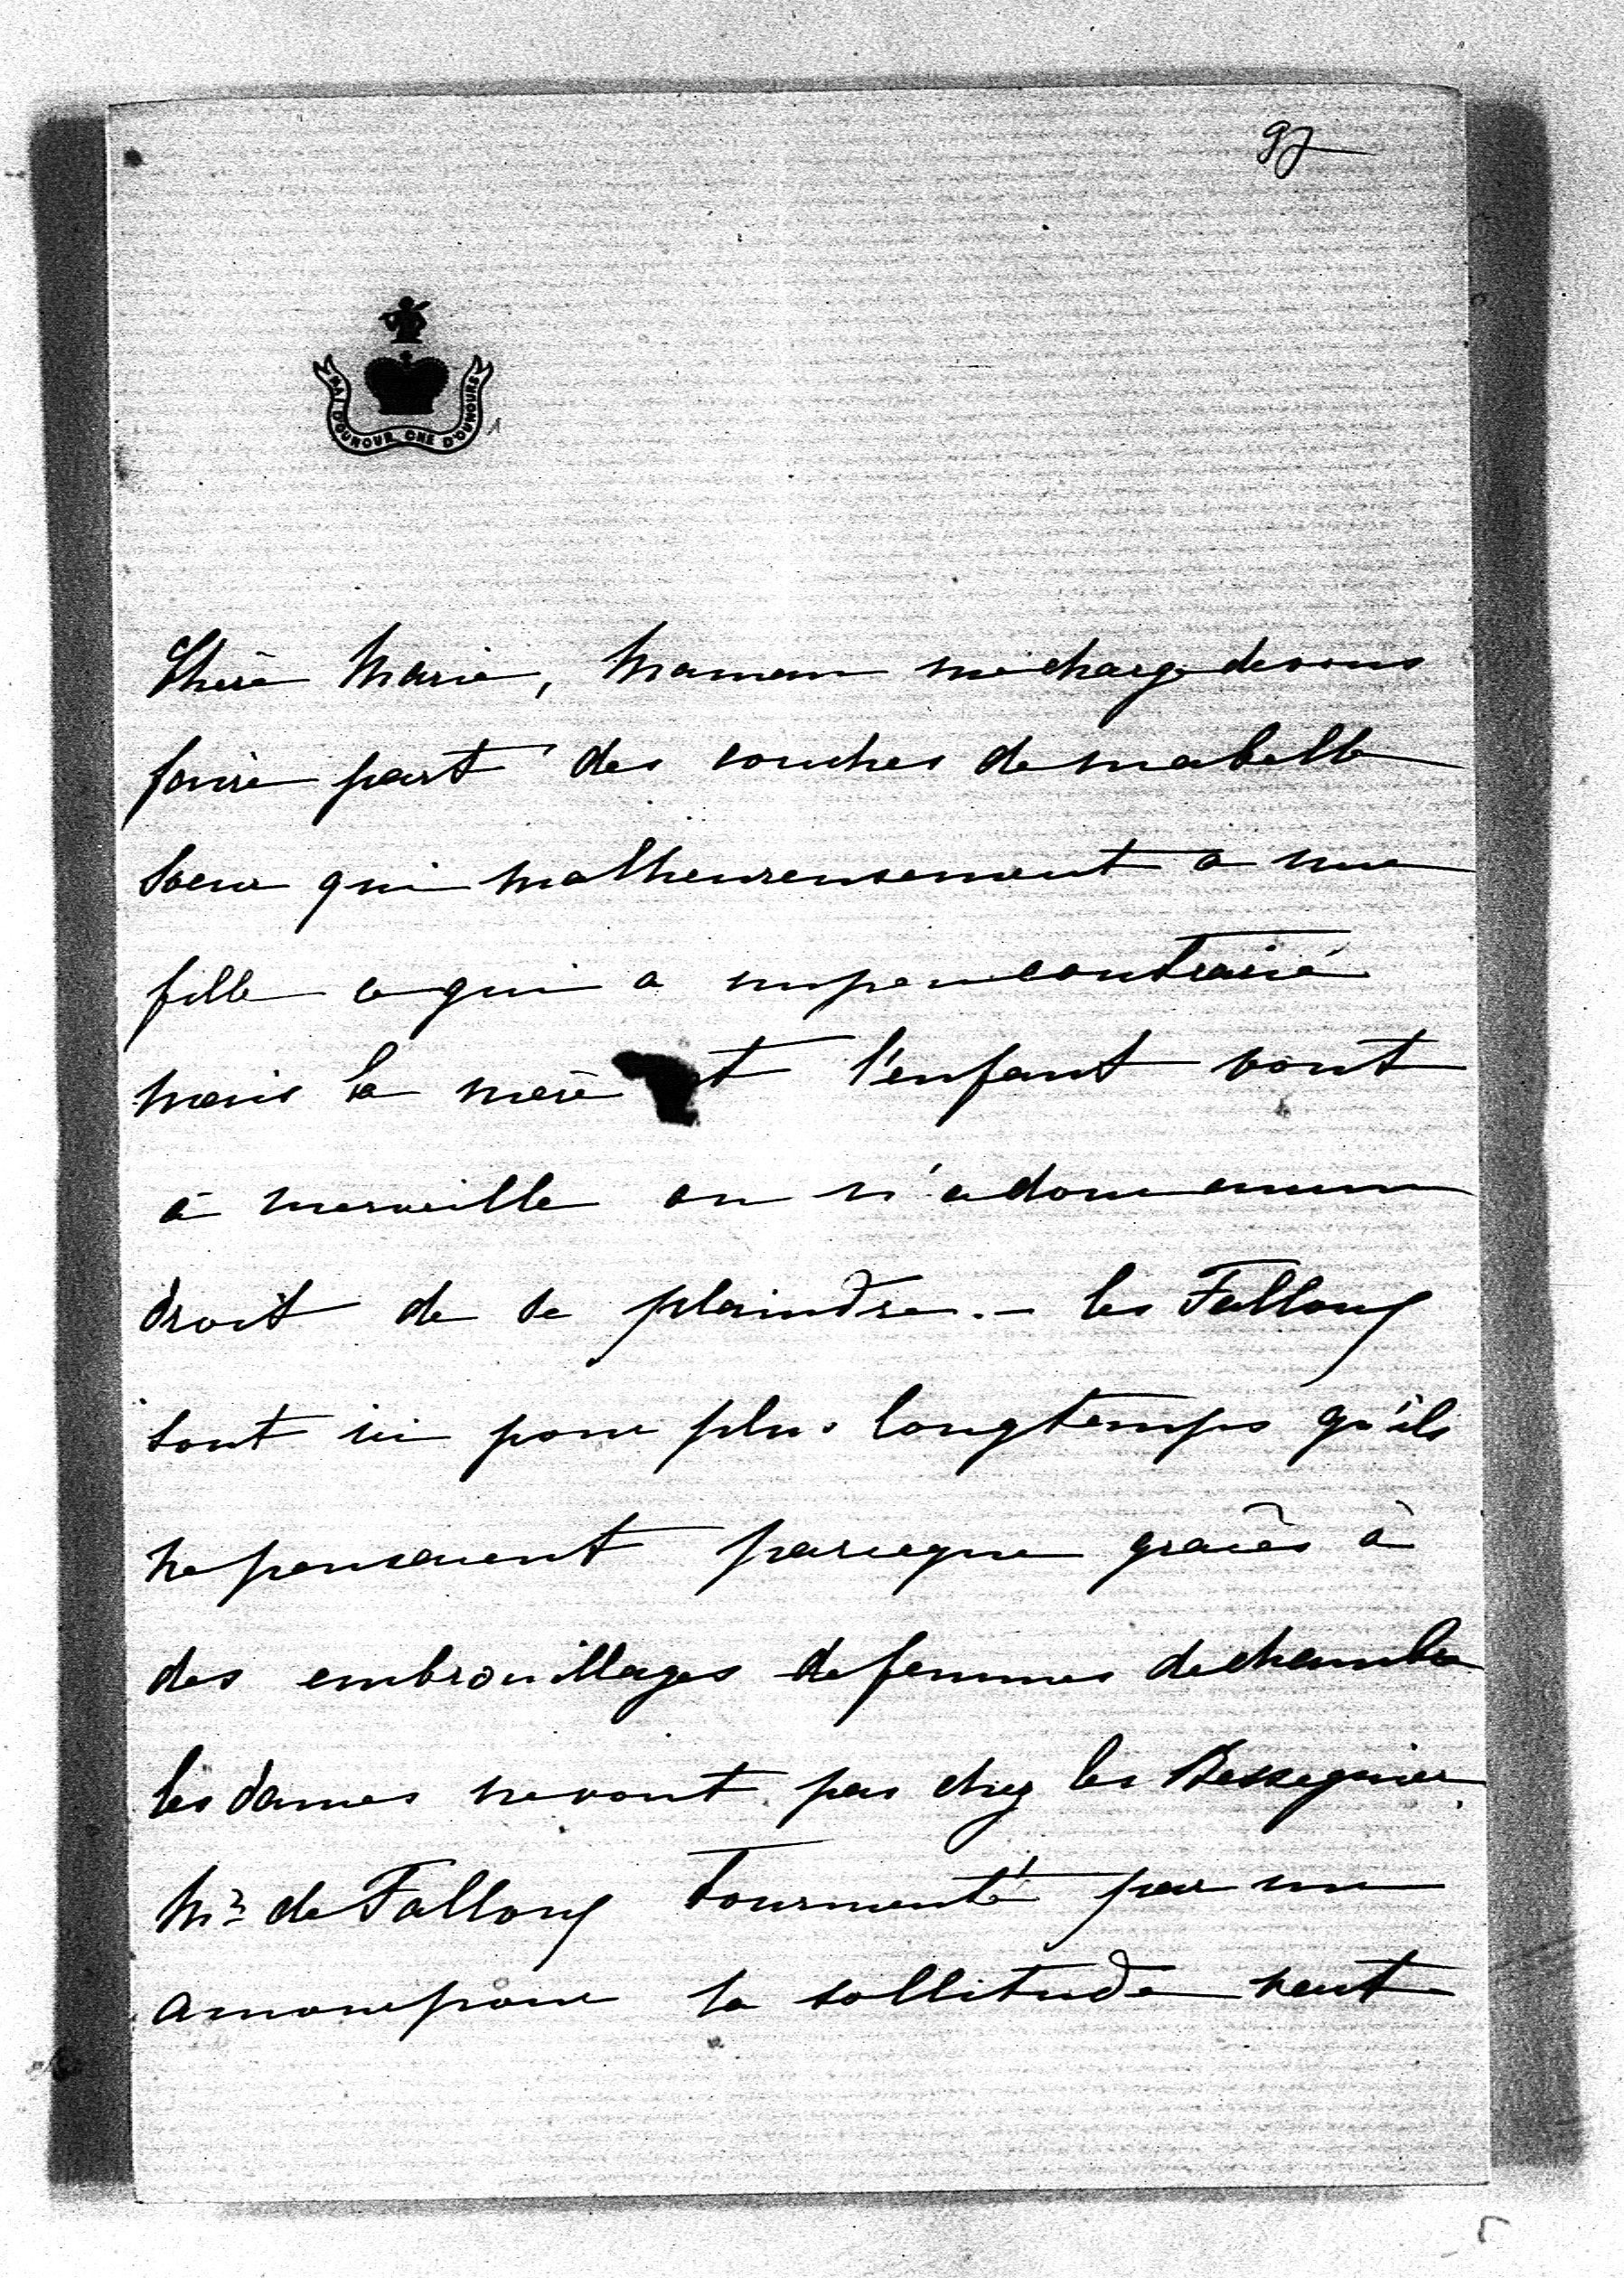 97
MAI D'OUNOUR CHE D'OUNOURS
Chère Marie, Maman me charge de vous
faire part des couches de ma belle
soeur qui malheureusement a une
fille ce qui a un peu contrarié
mais la mère et l'enfant vont
à merveille on n'a donc aucun
droit de se plaindre. – les Falloux
sont ici pour plus longtemps qu'ils
ne pensaient parceque graces à
des embrouillages de femmes de chambre
les dames ne vont pas chez les Rességuier
Mr de Falloux tourmenté par un
amour pour la sollitude veut